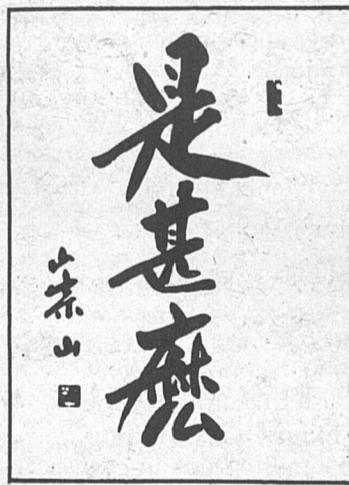 是甚麼
崇山